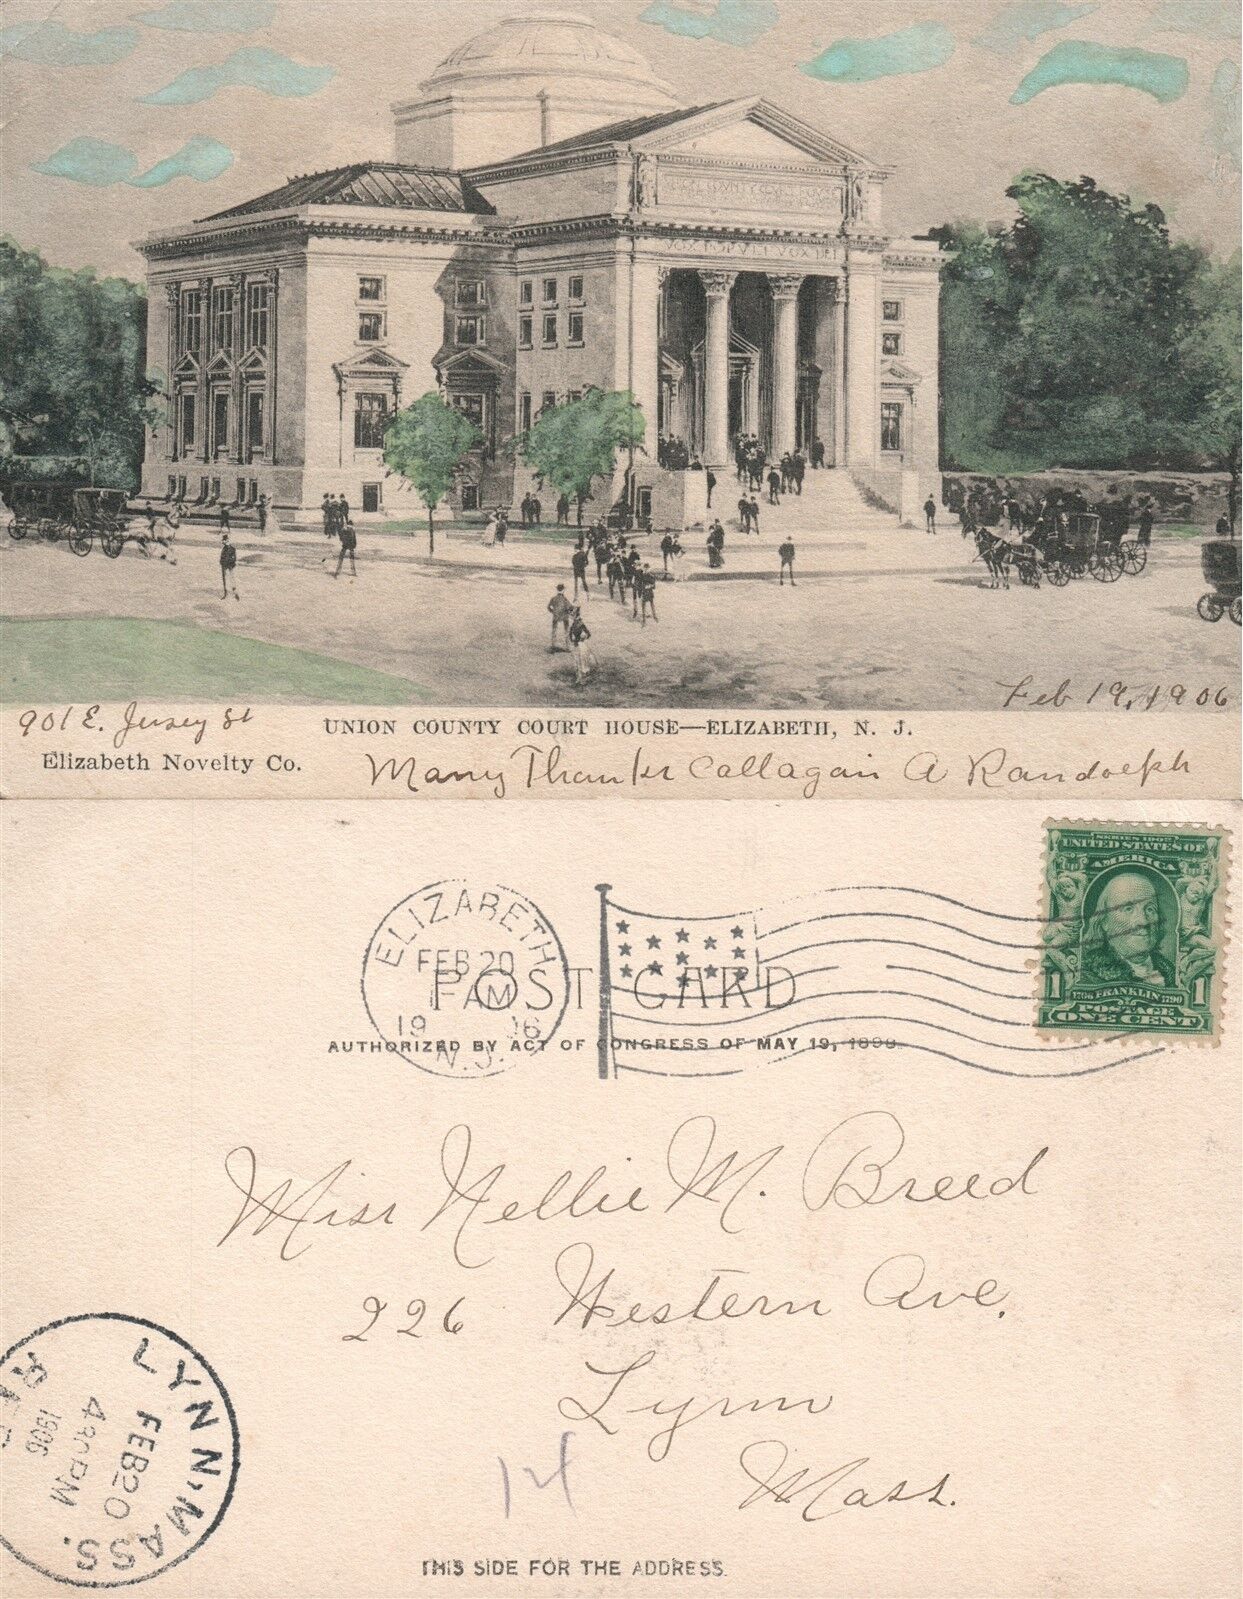 VOX POPULI VOX DEI
Feb 19, 1906
901 E. Jersey St
UNION COUNTY COURT HOUSE—ELIZABETH, N. J.
Elizabeth Novelty Co.
Many Thanks Call again A Randolph
SERIES 1902
UNITED STATES OF
AMERICA
1
1706 FRANKLIN 1790
1
POSTAGE
ONE CENT
ELIZABETH
FEB 20
1-AM
19 06
N.J.
POST CARD
AUTHORIZED BY ACT OF CONGRESS OF MAY 19, 1898.
Miss Nellie M. Breed
226 Western Ave.
Lynn
Mass.
LYNN, MASS.
FEB 20
430PM
1906
REC
14
THIS SIDE FOR THE ADDRESS.